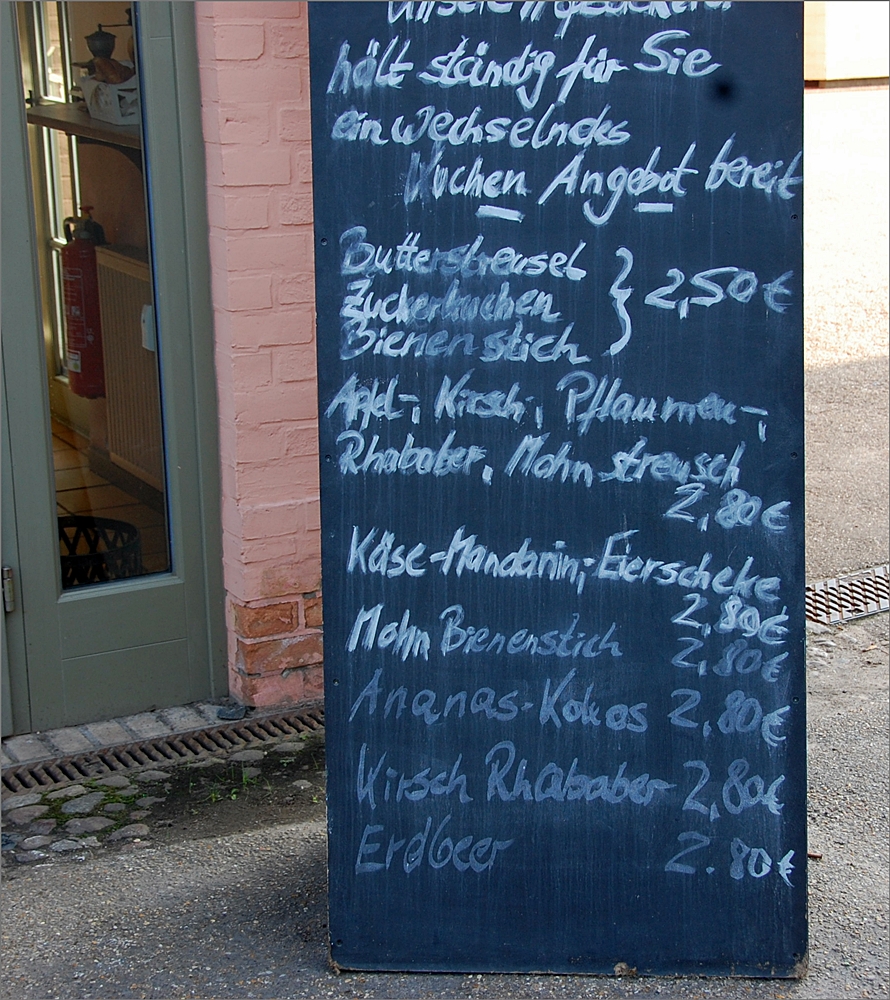 Unsere
hält ständig für Sie
ein wechselndes
Kuchen Angebot bereit
Butterstreusel
Zuckerkuchen } 2,50 €
Bienenstich
Apfel-, Kirsch-, Pflaumen-,
Rhababer, Mohn streusch
2,80 €
Käse-Mandarin,-Eierschecke
2,80€
Mohn Bienenstich 2,80€
Ananas-Kokos 2,80€
Kirsch Rhababer 2,80€
Erdbeer 2.80€